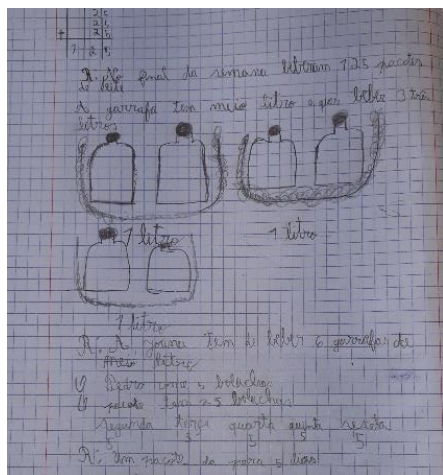 +
1 2 5
R: No final da semana beberam 125 pacotes
de leite
A garrafa tem meio litro e quer beber 3 três
litros
1 litro
1 litro
1 litro
R: A Joana tem de beber 6 garrafas de
meio litro
O Pedro come 5 bolachas
O pacote tem 25 bolachas
segunda terça quarta quinta sexta
5 5 5 5 5
R: Um pacote da para 5 dias